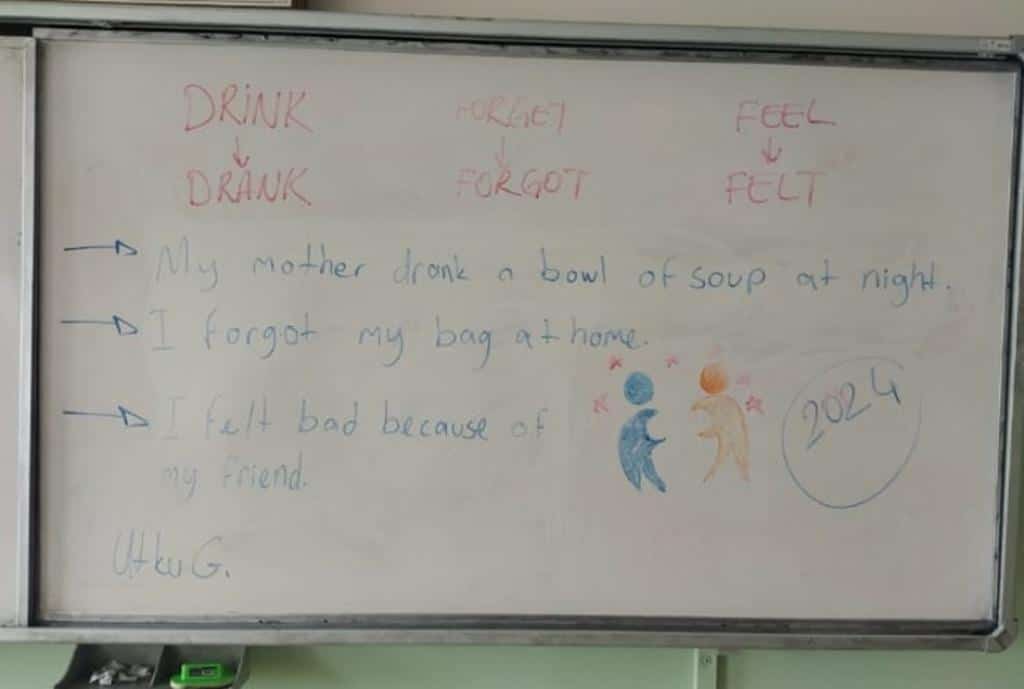 DRİNK FORGET FEEL
DRANK FORGOT FELT
My mother drank a bowl of soup at night.
I forgot my bag at home.
I felt bad because of
my friend.
2024
Utku G.